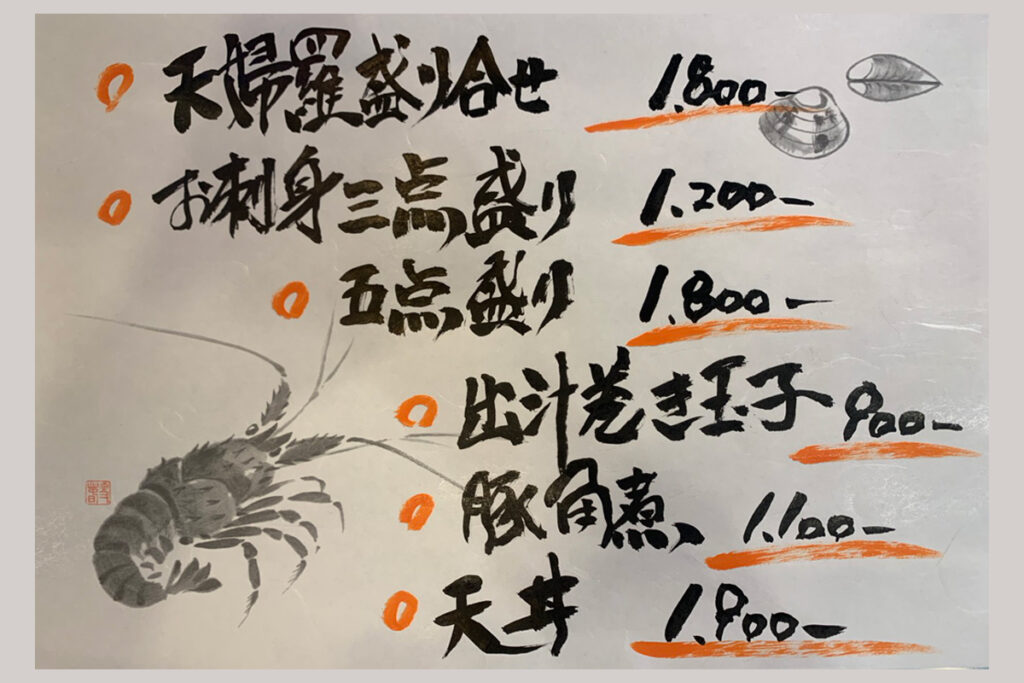 天婦羅盛り合せ 1.800-
お刺身三点盛り 1.200-
五点盛り 1.800-
出汁巻き玉子 900-
豚角煮 1.100-
天丼 1.900-